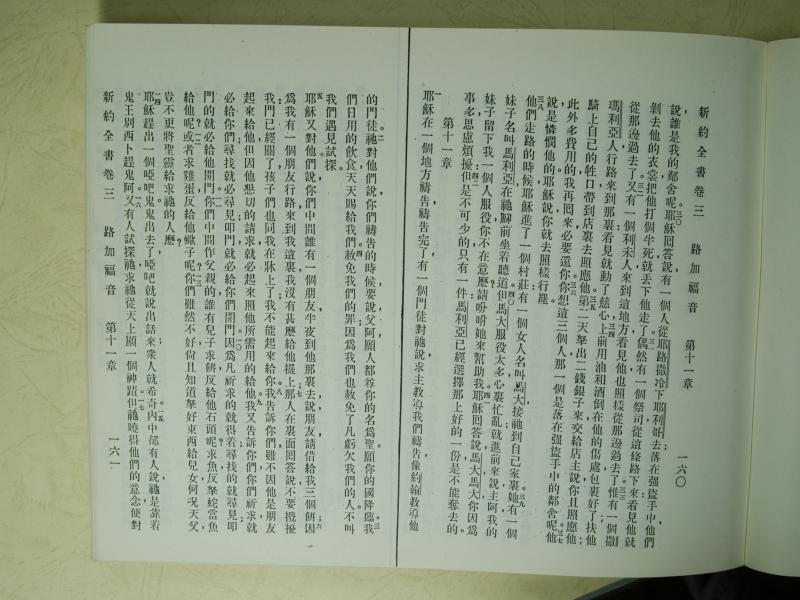 新約全書卷三　路加福音　第十一章　一六〇
說誰是我的鄰舍呢耶穌回答說有一個人從耶路撒冷下耶利哥去落在强盜手中他們
剝去他的衣裳把他打個半死就丟下他走了偶然有一個祭司從這條路下來看見他就
從那邊過去了又有一個利未人來到這地方看見他也照樣從那邊過去了惟有一個撒
瑪利亞人行路來到那裏看見就動了慈心上前用油和酒倒在他的傷處包裹好了扶他
騎上自己的牲口帶到店裏去照應他第二天拏出二錢銀子來交給店主說你且照應他
此外多費用的我再回來必要還你你想這三個人那一個是落在强盜手中的鄰舍呢他
說是憐憫他的耶穌說你就去照樣行罷
他們走路的時候耶穌進了一個村莊有一個女人名叫馬大接祂到自己家裏她有一個
妹子名叫馬利亞在祂腳前坐着聽道但馬大服役太多心裏忙亂就進前來說主阿我的
妹子留下我一個人服役你不在意麼請吩咐她來幫助我耶穌回答說馬大馬大你因爲
事多思慮煩擾但是不可少的只有一件馬利亞已經選擇那上好的一份是不能奪去的
第十一章
耶穌在一個地方禱告禱告完了有一個門徒對祂說求主教導我們禱告像約翰教導他
的門徒祂對他們說你們禱告的時候要說父阿願人都尊你的名爲聖願你的國降臨我
們日用的飲食天天賜給我們赦免我們的罪因爲我們也赦免了凡虧欠我們的人不叫
我們遇見試探
耶穌又對他們說你們中間誰有一個朋友半夜到他那裏去說朋友請借給我三個餅因
爲我有一個朋友行路來到我這裏我沒有甚麼給他擺上那人在裏面回答說不要攪擾
我門已經關了孩子們也同我在牀上了我不能起來給你我告訴你們雖不因他是朋友
起來給他但因他懇切的請求就必起來照他所需用的給他我又告訴你們你們祈求就
必給你們尋找就必尋見叩門就必給你們開門因爲凡祈求的就得着尋找的就尋見叩
門的就必給他開門你們中間作父親的誰有兒子求餅反給他石頭呢求魚反拏蛇當魚
給他呢或者求雞蛋反給他蠍子呢你們雖然不好尙且知道拏好東西給兒女何况天父
豈不更將聖靈給求祂的人麼
耶穌趕出一個啞吧鬼鬼出去了啞吧就說出話來衆人就希奇內中卻有人說祂是靠着
鬼王別西卜趕鬼阿又有人試探祂求祂從天上顯一個神蹟但祂曉得他們的意念便對
新約全書卷三　路加福音　第十一章　一六一